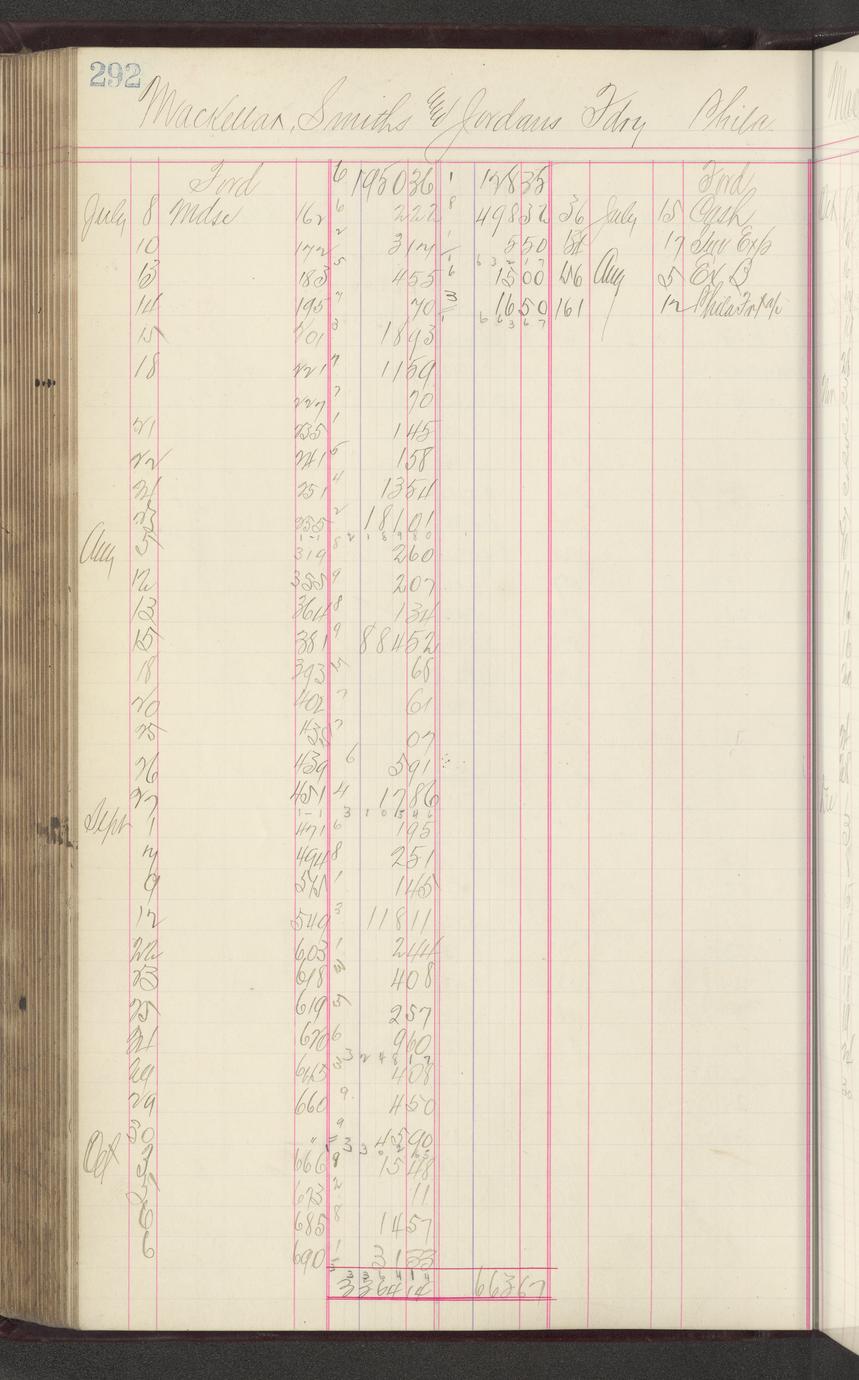 292
Mackellar, Smiths & Jordans Fdry Phila.
Ford 6 195036 1 12835 Ford
July 8 Mdse 162 6 222 8 49832 36 July 15 Cash
10 172 2 314 550 17 Inv Exp
13 183 5 455 6 1500 46 Aug 5 Ex B
14 195 7 70 3 1650 161 12 Phila Frt a/c
15 201 3 1893
18 221 7 1159
227 7 70
21 235 1 145
22 241 5 158
24 251 4 1354
25 255 2 18101
1-1 2 1 8 9 8 0
Aug 5 319 8 260
12 355 9 207
13 364 8 134
15 381 9 88452
18 393 5 68
20 402 7 61
25 435 7 07
26 439 6 591
27 451 4 1786
1-1 3 1 0 5 4 6
Sept 1 471 6 195
7 494 8 251
9 525 1 145
12 549 3 11811
22 603 1 244
23 618 408
25 619 5 257
24 620 6 960
3 2 4 8 1 2
29 645 3 408
29 660 9 450
30 " 9 4590
Oct 3 666 9 1548
5 673 2 11
6 685 8 1457
6 690 1 3133
3 3 6 4 1 4
336414 66367